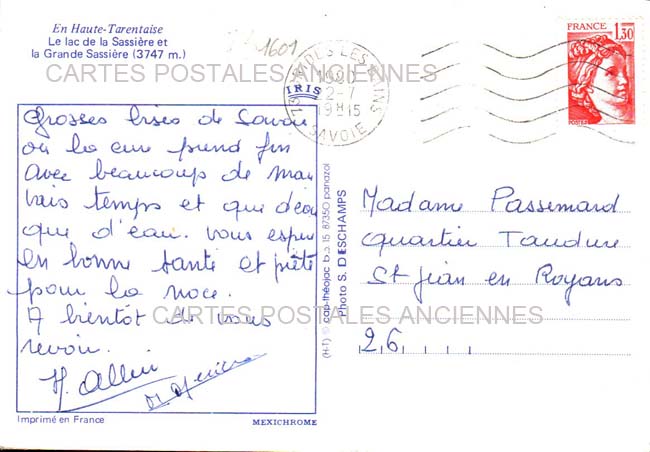 En Haute-Tarentaise
Le lac de la Sassière et
la Grande Sassière (3747 m.)
1601
FRANCE
1,30
POSTES
CARTES POSTALES ANCIENNES
IRIS
1980
2-7
1815
SAVOIE
Grosses bises de Savoie
où la cure prend fin
avec beaucoup de mau
vais temps et que d'eau
que d'eau. Vous espère
en bonne santé et prête
pour la noce.
A bientôt de vous
revoir.
H. Allier
Madame Passemard
Quartier
St Jean en Royans
26
CARTES POSTALES ANCIENNES
(H-T) © cap-théojac b.p. 15 87350 panazol
Photo S. DESCHAMPS
Imprimé en France
MEXICHROME